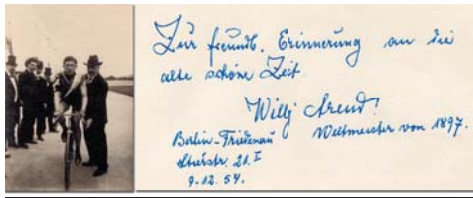 Zur freundl. Erinnerung an die
alte schöne Zeit.
Willy Arend!
Weltmeister von 1897.
Berlin-Friedenau
21.I
9.12.54.